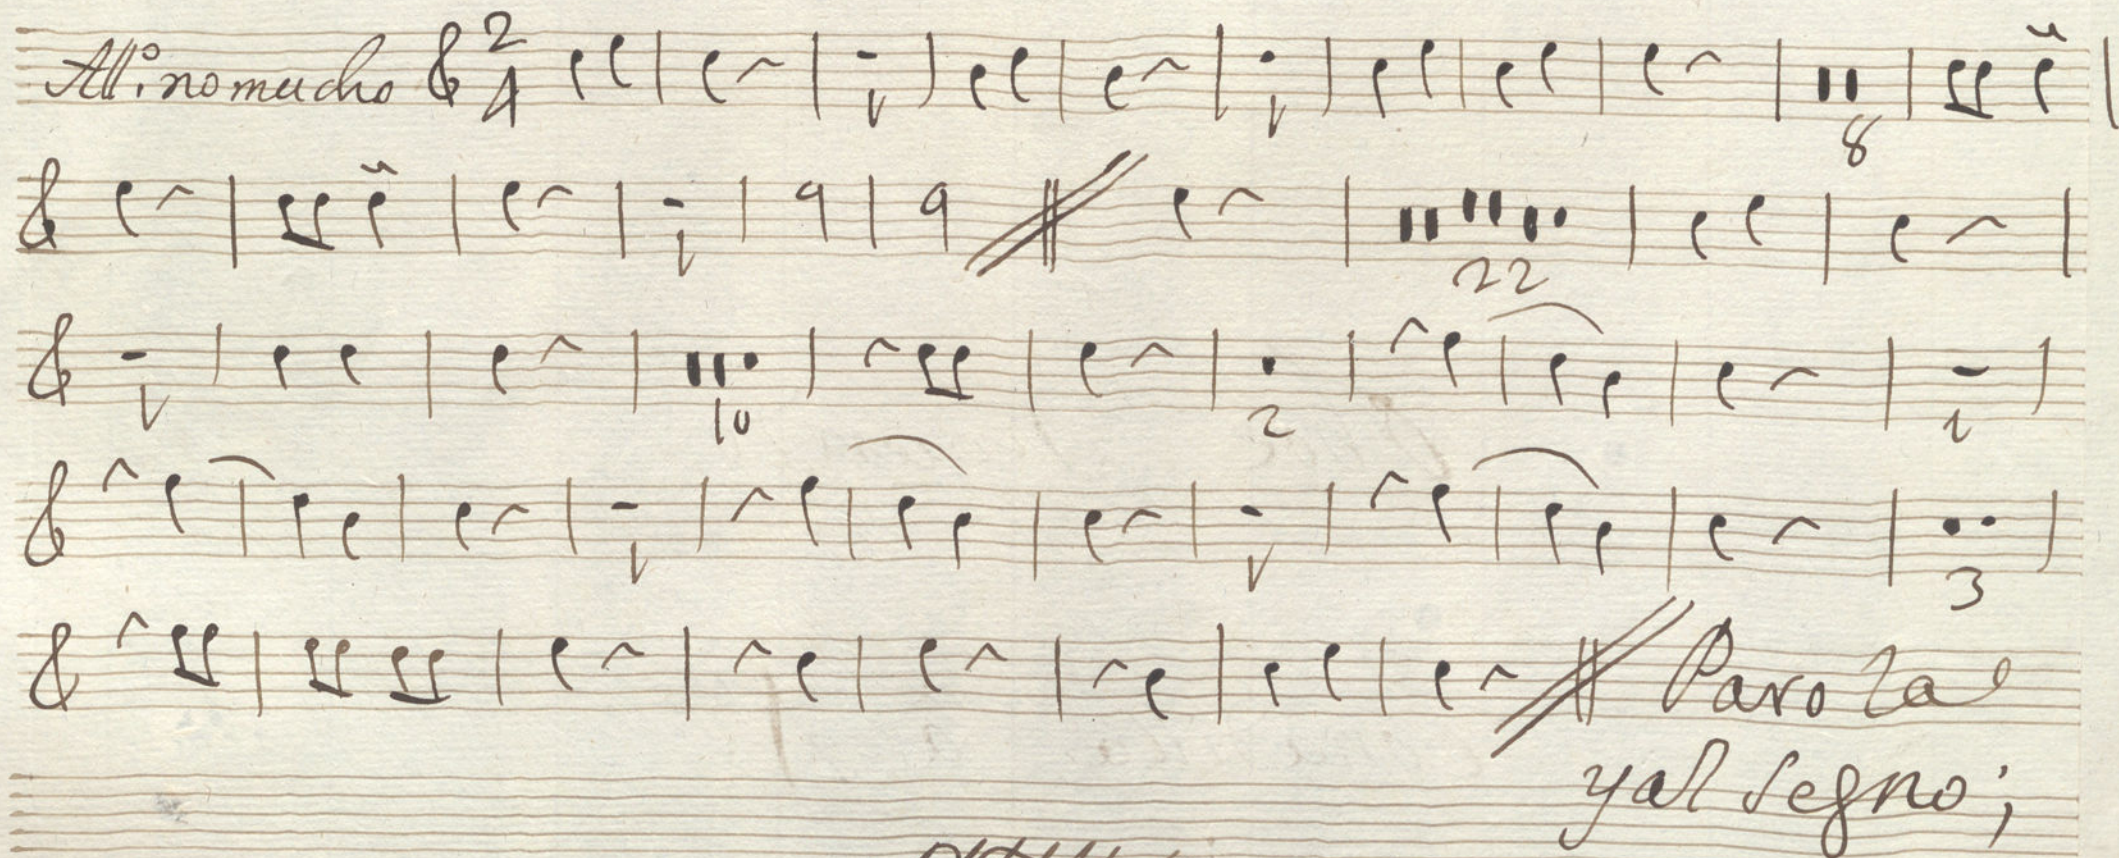 All.º no mucho 2/4 1 1 8
1 22
1 10 2 1
1 1 3
Paro la
y al Segno;